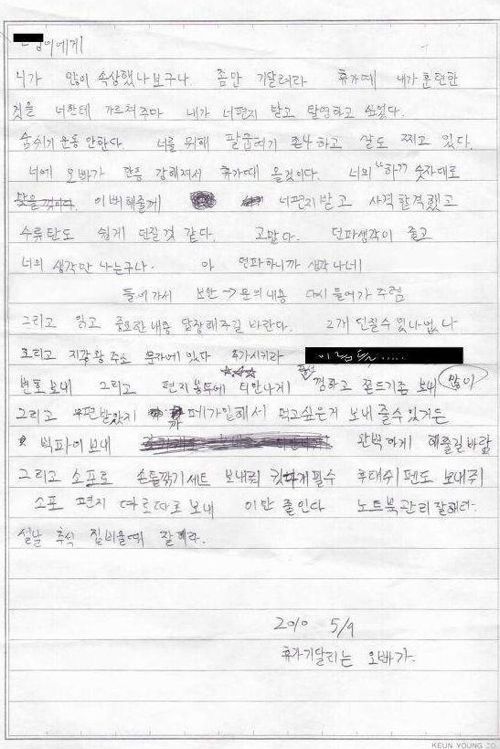 니가 많이 속상했나보구나. 좀만 기달려라 휴가때 내가 훈련한
것을 너한테 가르쳐주마 내가 너편지 받고 탈영하고 싶었다.
숨쉬기 운동 안한다 너를 위해 팔굽혀기 존나 하고 살도 찌고 있다.
너에 오빠가 한층 강해져서 휴가때 올것이다. 너의 "하" 숫자대로
이뻐해줄게 너편지 받고 사격합격했고
수류탄도 쉽게 던질것 같다. 고맙다. 던파생각이 좀고
너의 생각만 나는구나. 아 던파하니까 생각나네
들어가서 보안→문의내용 다시 들어가 주렴
그리고 읽고 중요한내용 답장해주길 바란다. 2개 던질수 있나없나
그리고 지각왕 주소 문자에 있다 추가시키라 이럼들.....
번호 보내 그리고 편지봉투에 티안나게 껌하고 쫀드기좀 보내 많이
그리고 우편받았지 까페가입해서 먹고싶은게 보내 줄수 있거든
빅파이보내 완벽하게 해줄길 바람
그리고 소포로 손톱깎기세트 보내줘 필수 후태쉬 펜도 보내줘
소포 편지 따로따로 보내 이만 줄인다 노트북관리 잘해라.
설날 추석 집비울때 잘해라.
2010 5/9
휴가기달리는 오빠가.
KEUN YOUNG CO.